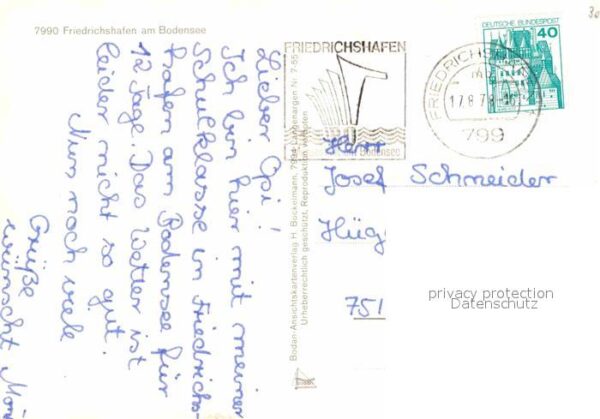 7990 Friedrichshafen am Bodensee
Lieber Opi!
Ich bin hier mit meiner
Schulklasse in Friedrichs-
hafen am Bodensee für
12 Tage. Das Wetter ist
leider nicht so gut!
Nun noch viele
Grüße
wünscht
Bodan-Ansichtskartenverlag H. Bockelmann, 7994 Langenargen Nr. 7-85
Urheberrechtlich geschützt, Reproduktion verboten
FRIEDRICHSHAFEN
am Bodensee
FRIEDRICHSH
17.8.78
799
DEUTSCHE BUNDESPOST
40
Herr
Josef Schneider
Hüg
751
privacy protection
Datenschutz